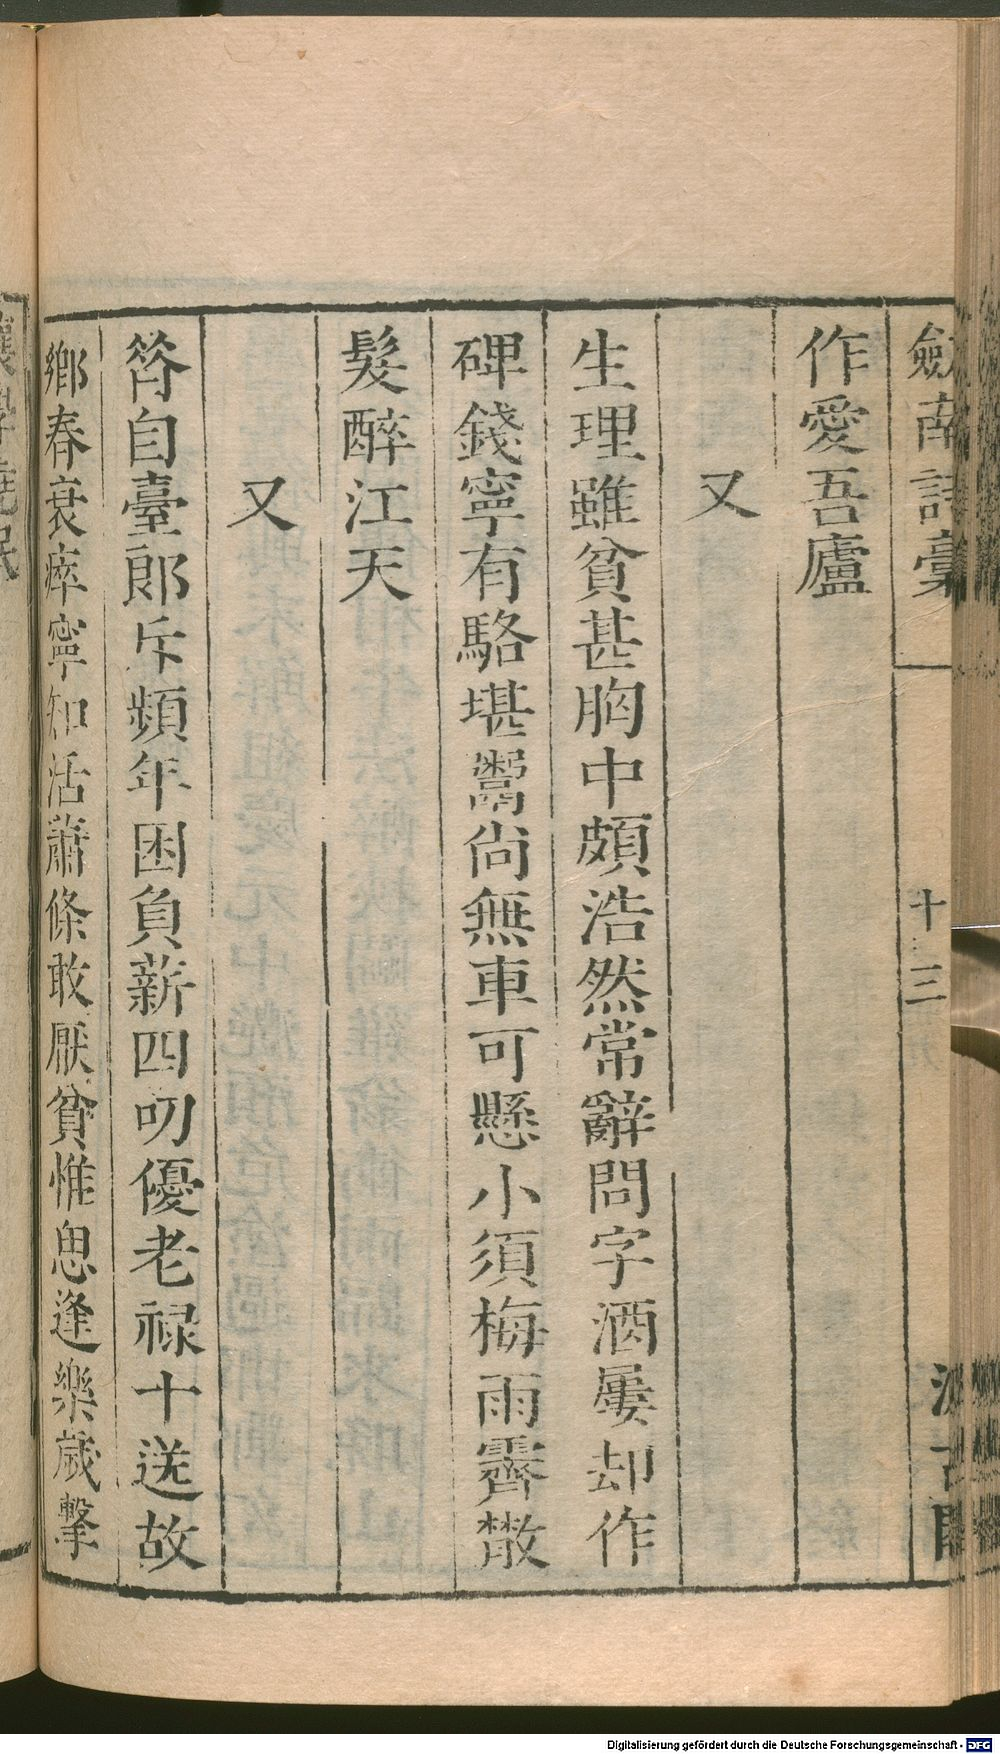 劒南詩藁 十三
作愛吾廬
又
生理雖貧甚胸中頗浩然常辭問字酒屢却作
碑錢寧有駱堪鬻尚無車可懸小須梅雨霽㪚
髮醉江天
又
筞自臺郎斥頻年困負薪四叨優老禄十送故
鄉春衰瘁寧知活蕭條敢厭貧惟思逢樂歲擊
Digitalisierung gefördert durch die Deutsche Forschungsgemeinschaft - DFG